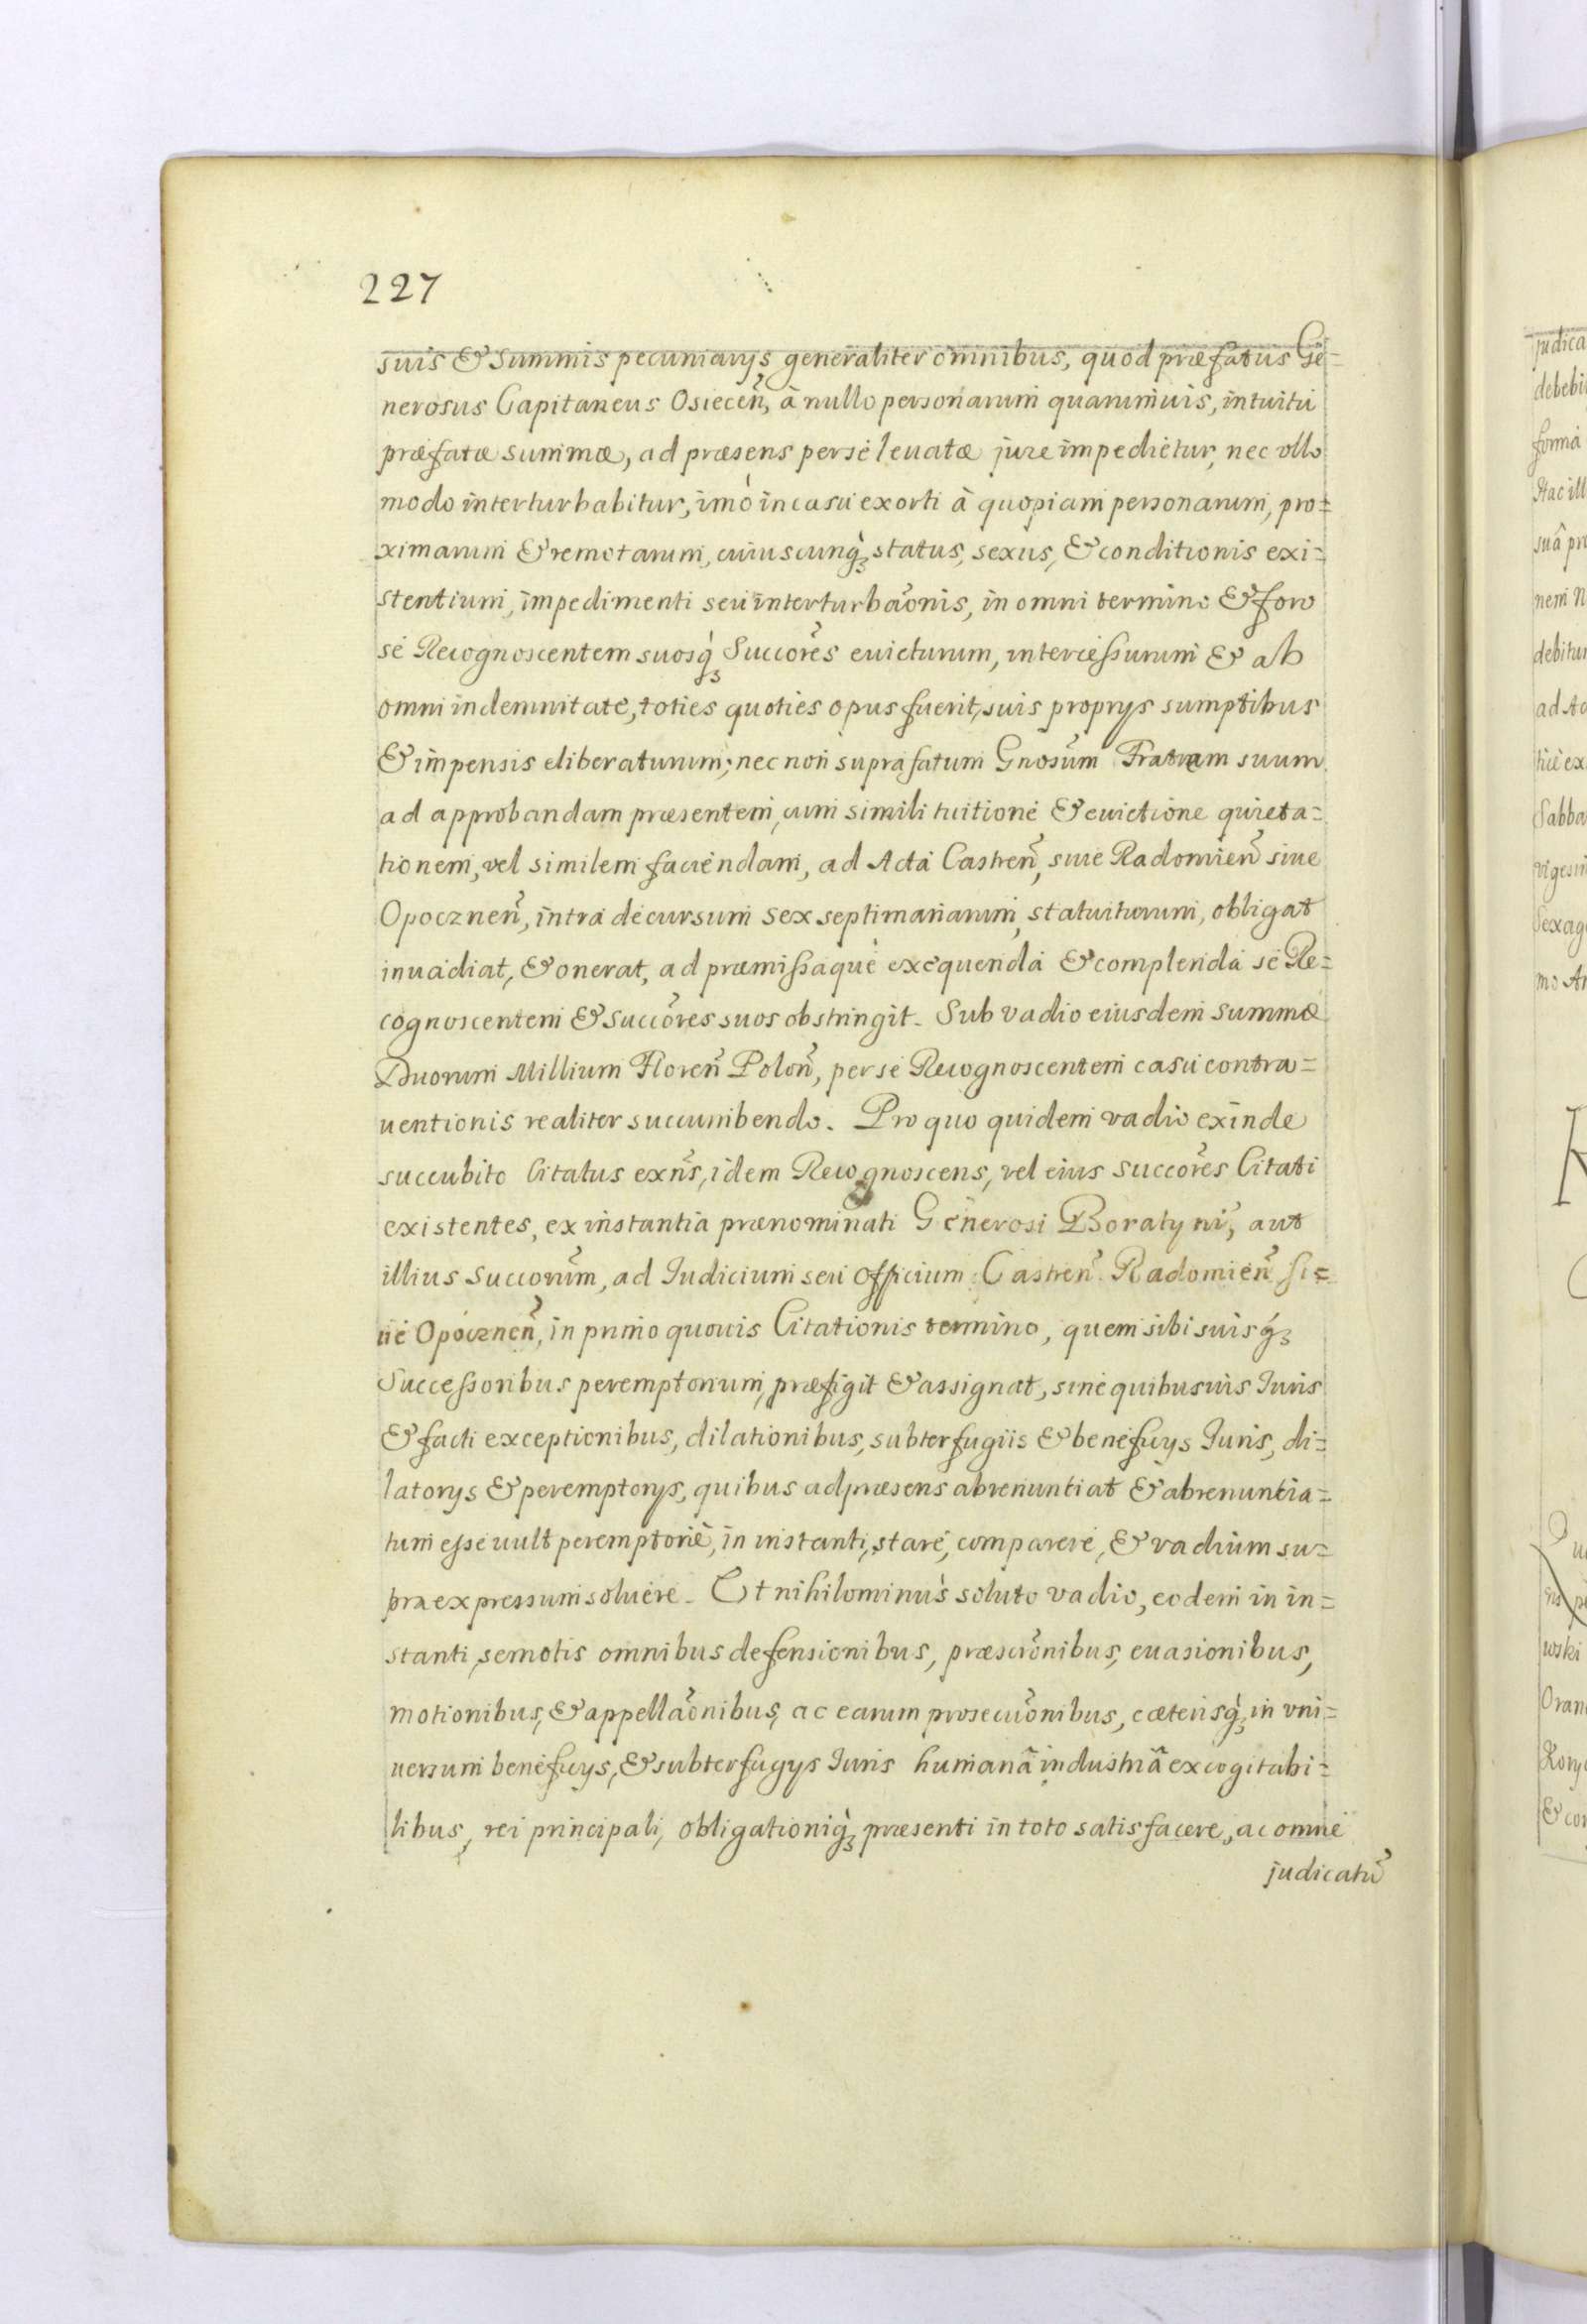 227
suis & summis pecuniarijs generaliter omnibus, quod præfatus Ge=
nerosus Capitaneus Osiecen̄, à nullo personarum quarumuis, intuitu
præfatæ summæ, ad præsens per se leuatæ jure impedietur, nec vllo
modo interturbabitur, imò in casu exorti à quopiam personarum, pro=
ximarum & remotarum, cuiuscunq̀ꝫ status, sexus, & conditionis exi=
stentium, impedimenti seu interturbãonis, in omni termino & foro
se Recognoscentem suosq̀ꝫ Succõres euicturum, intercessurum & ab
omni indemnitate, toties quoties opus fuerit, suis proprijs sumptibus
& impensis eliberaturum; nec non suprafatum Gnõsum Fratrem suum
ad approbandam præsentem, cum simili tuitione & euictione quieta=
tionem, vel similem faciendam, ad Acta Castren̄, siue Radomien̄ siue
Opocznen̄, intra decursum sex septimanarum, statuiturum, obligat
inuadiat, & onerat, ad præmissaque exequenda & complenda se Re=
cognoscentem & succõres suos obstringit. Sub vadio eiusdem summæ
Duorum Millium Floren̄ Polon̄, per se Recognoscentem casu contra=
uentionis realiter succumbendo. Pro quo quidem vadio exinde
succubito Citatus exñs, idem Recognoscens, vel eius succõres Citati
existentes, ex instantia prænominati Generosi Boratyni, aut
illius succorũm, ad Iudicium seu Officium Castren̄ Radomien̄ si=
ue Opocznen̄, in primo quouis Citationis termino, quem sibi suisq́ꝫ
Successoribus peremptorium, præfigit & assignat, sine quibusuis Iuris
& facti exceptionibus, dilationibus, subterfugiis & beneficijs Iuris, di=
latorijs & peremptorijs, quibus ad præsens abrenuntiat & abrenuntia=
tum esse vult peremptoriè, in instanti, stare, comparere, & vadium su=
pra expressum soluere. Et nihilominus soluto vadio, eodem in in=
stanti, semotis omnibus defensionibus, præscrõnibus, euasionibus,
motionibus, & appellãonibus, ac earum prosecuõnibus, cæterisq̀ꝫ in vni=
uersum beneficijs, & subterfugijs Iuris humanâ industriâ excogitabi=
libus, rei principali, obligationiq̀ꝫ præsenti in toto satisfacere, ac omne
judicatũ